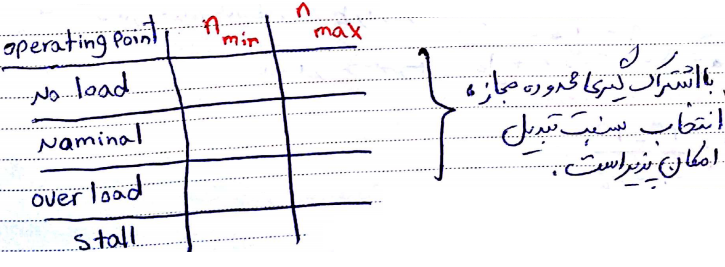 operating point n min n max
No load
Nominal
over load
stall
با اشتراک گیری محدوده مجازه
انتخاب نسبت تبدیل
امکان پذیر است.